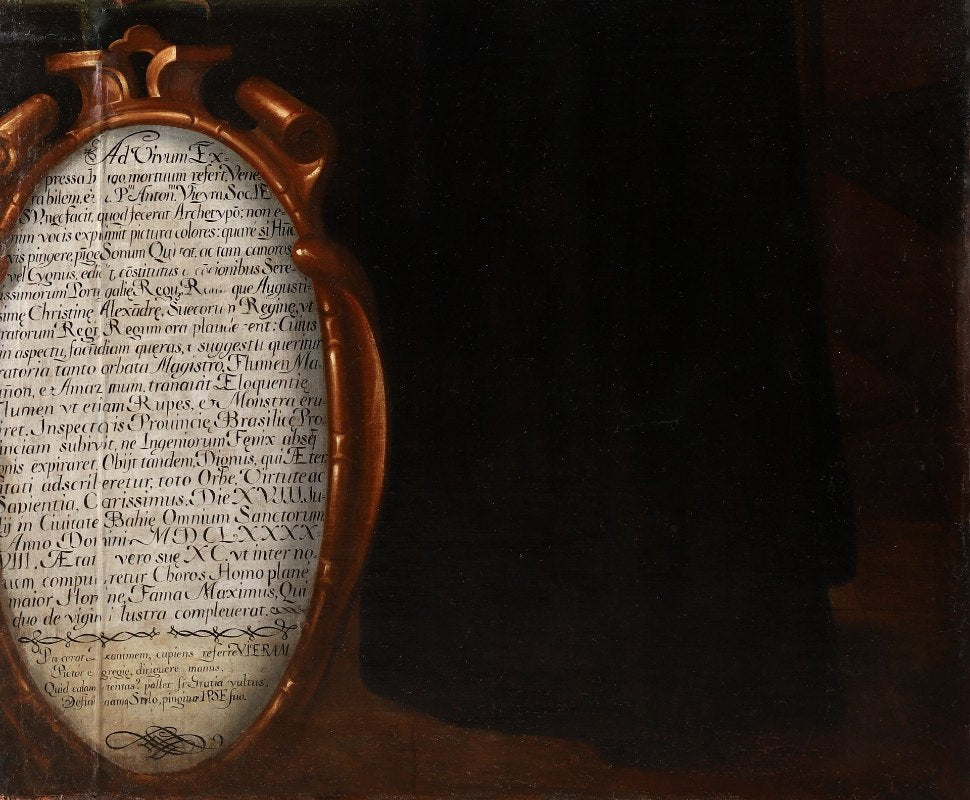 Ad Vivum Ex-
pressa mortuum refert, Vene-
rabilem, P.^m Anton.^m Vieyra Soc. IE
SV. nec facit, quod fecerat Archetypō; non e-
nim vocis exprimit pictura colores: quare si Huc
vis pingere, pīge Sonum Qui tot, ac tam canoros,
vel Cygnus, cōstitutus cōcionibus Sere-
issimorum Portugalię Regū, que Augusti-
simę Christinę Alexādrę, Suecorum Reginę, vt
ratorum Regi Regum ora plauderent: Cuius
in aspectu, facūdiam queras, suggestu querimur
ratoria, tanto orbata Magistro, Flumen Ma-
añon, & Amazonum, tranauit Æloquentię
Flumen vt etiam Rupes, & Monstra eru-
iret. Inspectoris Prouincię Brasilicę Pro-
inciam subivit, ne Ingeniorum Fęnix absq
onis expiraret. Obijt tandem, Dignus, qui Æter
itati adscriberetur, toto Orbe, Virtute ac
Sapientia, Clarissimus. Die XVIII Ju-
lij in Ciuitate Bahię Omnium Sanctorum,
Anno Domini MDCLXXXX-
VIII. Ætatis vero suę XC. vt inter no-
uem computaretur Choros Homo plane
maior Homine, Fama Maximus, Qui
duo de viginti lustra compleuerat.
cerat exanimem, cupiens referre VIERAM
Pictor egregię, diriguere manus.
Quid calam tentas? pallet sr Gratia vultus,
Desine namq Stylo, pingitur IPSE suo.